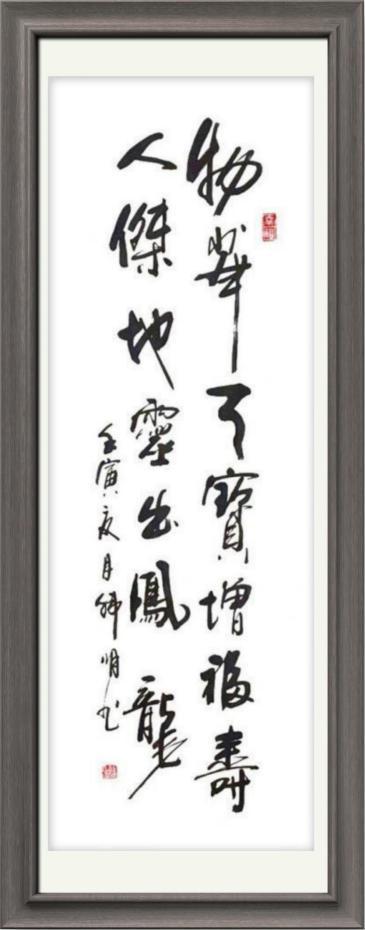 物華天寶增福壽
人傑地靈出鳳龍
壬寅夏月韩明书